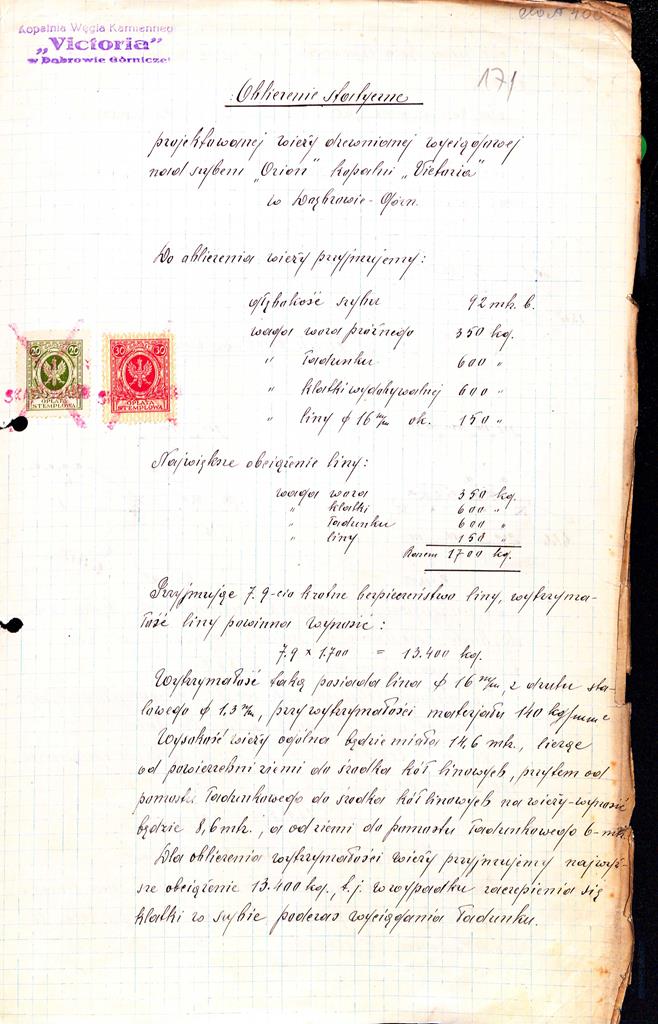 Kopalnia Węgla Kamiennego
„Victoria”
w Dąbrowie Górniczej
171
Obliczenie statyczne
projektowanej wieży drewnianej wyciągowej
nad szybem „Orion” kopalni „Victoria”
w Dąbrowie-Górn.
Do obliczenia wieży przyjmujemy:
głębokość szybu 92 mb. b.
waga woza próżnego 350 kg.
„ ładunku 600 „
„ klatki wydobywalnej 600 „
„ liny ϕ 16 m/m ok. 150 „
20 20
OPŁATA
STEMPLOWA
30 30
OPŁATA
STEMPLOWA
Największe obciążenie liny:
waga woza 350 kg.
„ klatki 600 „
„ ładunku 600 „
„ liny 150 „
Razem 1700 kg.
Przyjmując 7.9-cio krotne bezpieczeństwo liny, wytrzyma-
łość liny powinna wynosić:
7.9 x 1.700 = 13.400 kg.
Wytrzymałość taką posiada lina ϕ 16 m/m, z drutu sta-
lowego ϕ 1,3 m/m, przy wytrzymałości materjału 140 kg/mm²
Wysokość wieży ogólna będzie miała 14,6 mtr., licząc
od powierzchni ziemi do środka kół linowych, przytem od
pomostu ładunkowego do środka kół linowych na wieży-wynosić
będzie 8,6 mtr., a od ziemi do pomostu ładunkowego 6-mtr.
Dla obliczenia wytrzymałości wieży przyjmujemy najwyż-
sze obciążenie 13.400 kg., t.j. w wypadku zaczepienia się
klatki w szybie podczas wyciągania ładunku.